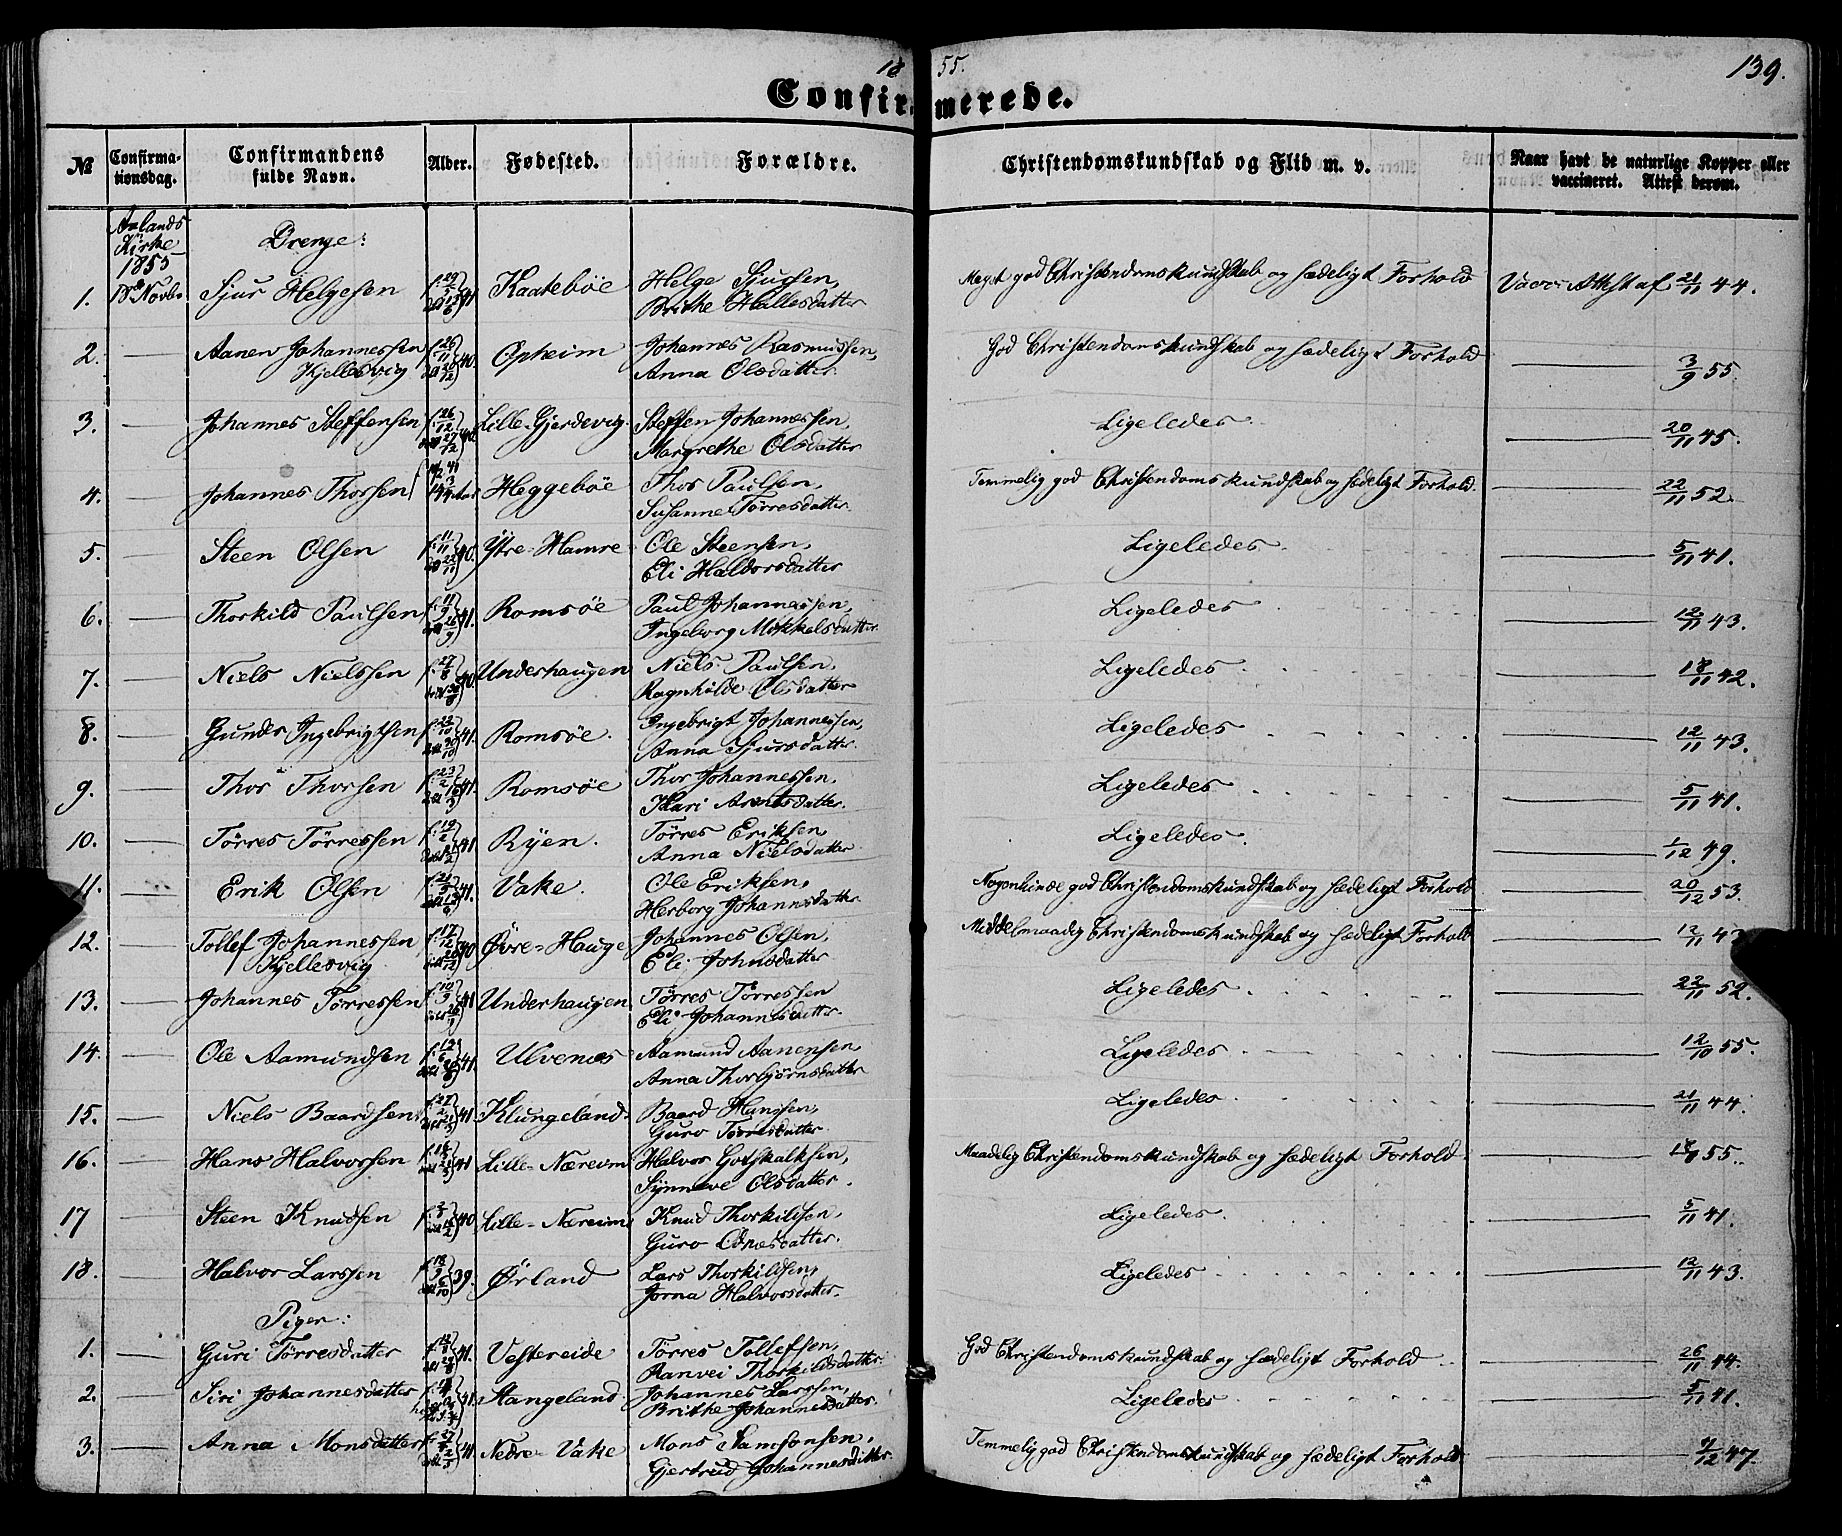 1855.
139.
Confirmerede.
№
Confirmationsdag.
Confirmandens fulde Navn.
Alder.
Fødested.
Forældre.
Christendomskundskab og Flid m. v.
Naar havt de naturlige Kopper eller vaccineret. Attest derom.
Kirke 1855
Drenge:
1. Novbr. Sjur Helgesen 41. Kaatebøe Helge Sjursen, Meget god Christendomskundskab og sædeligt Forhold Attest af 21/11 44.
Brithe Hallesdatter
2. — Aanen Johannessen 40. Opheim Johannes Rasmussen, God Christendomskundskab og sædeligt Forhold — 3/9 55.
Kjellesvig Anna Olsdatter
3. — Johannes Steffensen 40. Lille-Gjerdevig Steffen Johannessen, Ligeledes — 20/11 45.
Margrethe Olsdatter
4. — Johannes Thorsen Heggebøe Thor Paulsen, Temmelig god Christendomskundskab og sædeligt Forhold. — 22/11 52.
Susanne Tørresdatter
5. — Steen Olsen 40. Ytre-Hamre Ole Steensen, Ligeledes — 5/11 41.
Eli Haldorsdatter
6. — Thorkild Paulsen 41. Romsøe Paul Johannessen, Ligeledes — 12/11 43.
Ingeborg Mikkelsdatter
7. — Niels Nielssen 40. Underhaugen Niels Paulsen, Ligeledes — 18/11 42.
Ragnhilde Olsdatter
8. — Gunder Ingebrigtsen 41. Romsøe. Ingebrigt Johannessen, Ligeledes — 12/11 43.
Anna Sjursdatter
9. — Thor Thorsen 41. Romsøe Thor Johannessen, Ligeledes — 5/11 41.
Kari Arentsdatter.
10. — Tørres Tørressen 41 Ryen. Tørres Eriksen, Ligeledes — 1/12 49.
Anna Nielsdatter
11. — Erik Olsen 41. Vake. Ole Eriksen, Nogenlunde god Christendomskundskab og sædeligt Forhold — 20/12 53.
Herborg Johannesdatter
12. — Tollef Johannessen 40 Øvre-Hauge Johannes Olsen, Middelmaadig Christendomskundskab og sædeligt Forhold — 12/11 43
Kjellesvig Eli Johnsdatter
13. — Johannes Tørressen 41 Underhaugen Tørres Tørressen Ligeledes — 22/11 52.
Eli Johannesdatter.
14. — Ole Aamundsen 41. Ulvenæs Aamund Aanensen, Ligeledes — 12/10 55.
Anna Thorbjørnsdatter
15. — Niels Baardsen 41 Klungeland Baard Hanssen, Ligeledes — 21/11 44.
Guro Tørresdatter.
16. — Hans Halvorsen 41 Lille-Næreim Halvor Gotskalksen, Maadelig Christendomskundskab og sædeligt Forhold. — 55.
Synneve Olsdatter.
17 — Steen Knudsen 40 Lille-Næreim Knud Thorkildsen, Ligeledes. — 5/11 41.
Guro Odnesdatter.
18. — Halvor Larssen 39. Ørland Lars Thorkildsen, Ligeledes — 12/11 43.
Jorna Halvorsdatter.
Piger:
1. — Guri Tørresdatter 41. Vestereide Tørres Tollefsen, God Christendomskundskab og sædeligt Forhold — 26/11 44.
Ranvei Thorkildsdatter.
2. — Siri Johannesdatter 41. Stangeland. Johannes Larssen, Ligeledes — 5/11 41.
Brithe Johannesdatter.
3. — Anna Monsdatter 41. Nedre-Vake Mons Samsonsen, Temmelig god Christendomskundskab og sædeligt Forhold — 7/12 47.
Gjertrud Johannesdatter